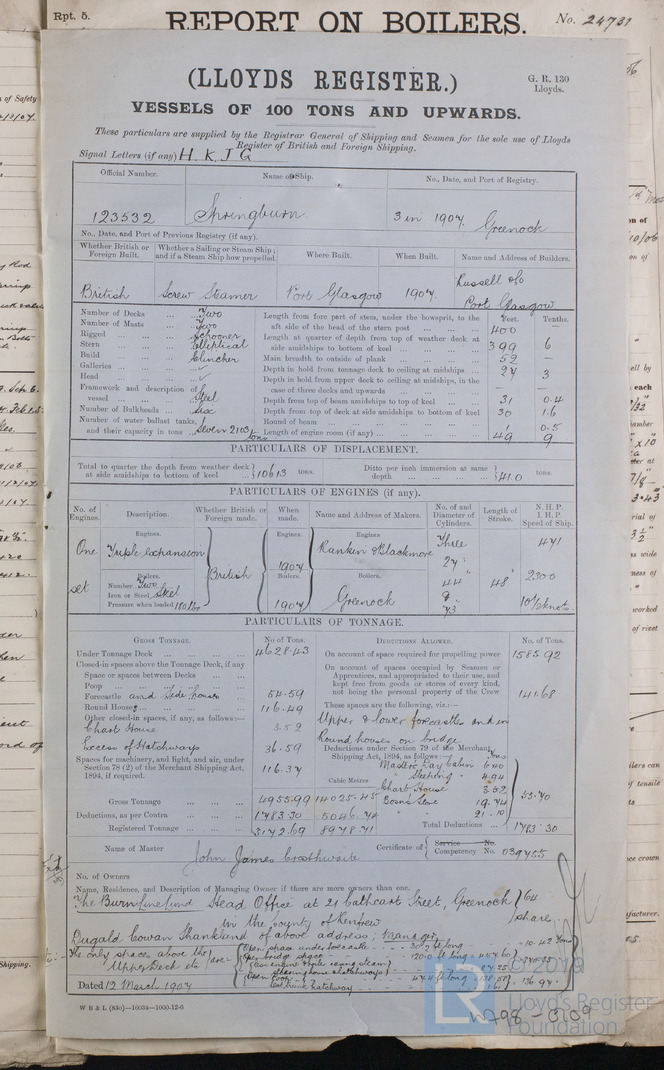 Rpt. 5.
REPORT ON BOILERS.
No. 24731
(LLOYDS REGISTER.)
G. R. 130
Lloyds.
VESSELS OF 100 TONS AND UPWARDS.
These particulars are supplied by the Registrar General of Shipping and Seamen for the sole use of Lloyds
Register of British and Foreign Shipping.
Signal Letters (if any) H. K. J. G
Official Number. Name of Ship. No., Date, and Port of Registry.
123532 Springburn 3 in 1907 Greenock
No., Date, and Port of Previous Registry (if any).
Whether British or Foreign Built. Whether a Sailing or Steam Ship; and if a Steam Ship how propelled. Where Built. When Built. Name and Address of Builders.
British Screw Steamer Port Glasgow 1907 Russell & Co Port Glasgow
Number of Decks Two
Number of Masts Two
Rigged Schooner
Stern Elliptical
Build Clincher
Galleries
Head
Framework and description of vessel Steel
Number of Bulkheads Six
Number of water ballast tanks, and their capacity in tons Seven 2103 tons
Feet. Tenths.
Length from fore part of stem, under the bowsprit, to the aft side of the head of the stern post 400 —
Length at quarter of depth from top of weather deck at side amidships to bottom of keel 399 6
Main breadth to outside of plank 52 —
Depth in hold from tonnage deck to ceiling at midships 27 3
Depth in hold from upper deck to ceiling at midships, in the case of three decks and upwards
Depth from top of beam amidships to top of keel 31 0.4
Depth from top of deck at side amidships to bottom of keel 30 1.6
Round of beam 1 0.5
Length of engine room (if any) 49 9
PARTICULARS OF DISPLACEMENT.
Total to quarter the depth from weather deck at side amidships to bottom of keel 10613 tons.
Ditto per inch immersion at same depth 41.0 tons
PARTICULARS OF ENGINES (if any).
No. of Engines. Description. Whether British or Foreign made. When made. Name and Address of Makers. No. of and Diameter of Cylinders. Length of Stroke. N.H.P. I.H.P. Speed of Ship.
Engines. Engines. Engines
One Triple expansion 1907 Rankin & Blackmore Three 471
27"
set British 44 48" 2300
Boilers. Boilers. Boilers.
Number Two
Iron or Steel Steel
Pressure when loaded 180 lbs 1907 Greenock 73 10½ knots
PARTICULARS OF TONNAGE.
GROSS TONNAGE. No. of Tons.
Under Tonnage Deck 4628.43
Closed-in spaces above the Tonnage Deck, if any
Space or spaces between Decks
Poop
Forecastle and Side houses 54.59
Round House 116.49
Other closed-in spaces, if any, as follows:—
Chart House 3.52
Excess of Hatchways 36.59
Spaces for machinery, and light, and air, under Section 78 (2) of the Merchant Shipping Act, 1894, if required. 116.37
Cubic Metres
Gross Tonnage 4955.99 14025.45
Deductions, as per Contra 1783.30 5046.74
Registered Tonnage 3172.69 8978.71
DEDUCTIONS ALLOWED. No. of Tons.
On account of space required for propelling power 1585.92
On account of spaces occupied by Seamen or Apprentices, and appropriated to their use, and kept free from goods or stores of every kind, not being the personal property of the Crew 141.68
These spaces are the following, viz.:—
Upper & lower forecastle and in
Round houses on bridge
Deductions under Section 79 of the Merchant Shipping Act, 1894, as follows:— Tons
Masters Day Cabin 6.40
" Sleeping " 4.94
Chart House 3.52
Bosns Store 19.74
" " 21.10
55.70
Total Deductions 1783.30
Name of Master John James Crosthwaite
Certificate of Service No.
Competency No. 039755
No. of Owners
Name, Residence, and Description of Managing Owner if there are more owners than one.
Head Office at 21 Cathcart Street, Greenock 64
in the county of Renfrew share
Dugald Cowan Shankland of above address, Manager
The only spaces above the Upper Deck etc are:—
Open space under forecastle 10.42 Tons
Open bridge space 120.0 ft long
Dated 12 March 1907
136.97
W B & L (830)—16034—1000-12-6
© 2019
Lloyd's Register
Foundation
LR
W798-0109